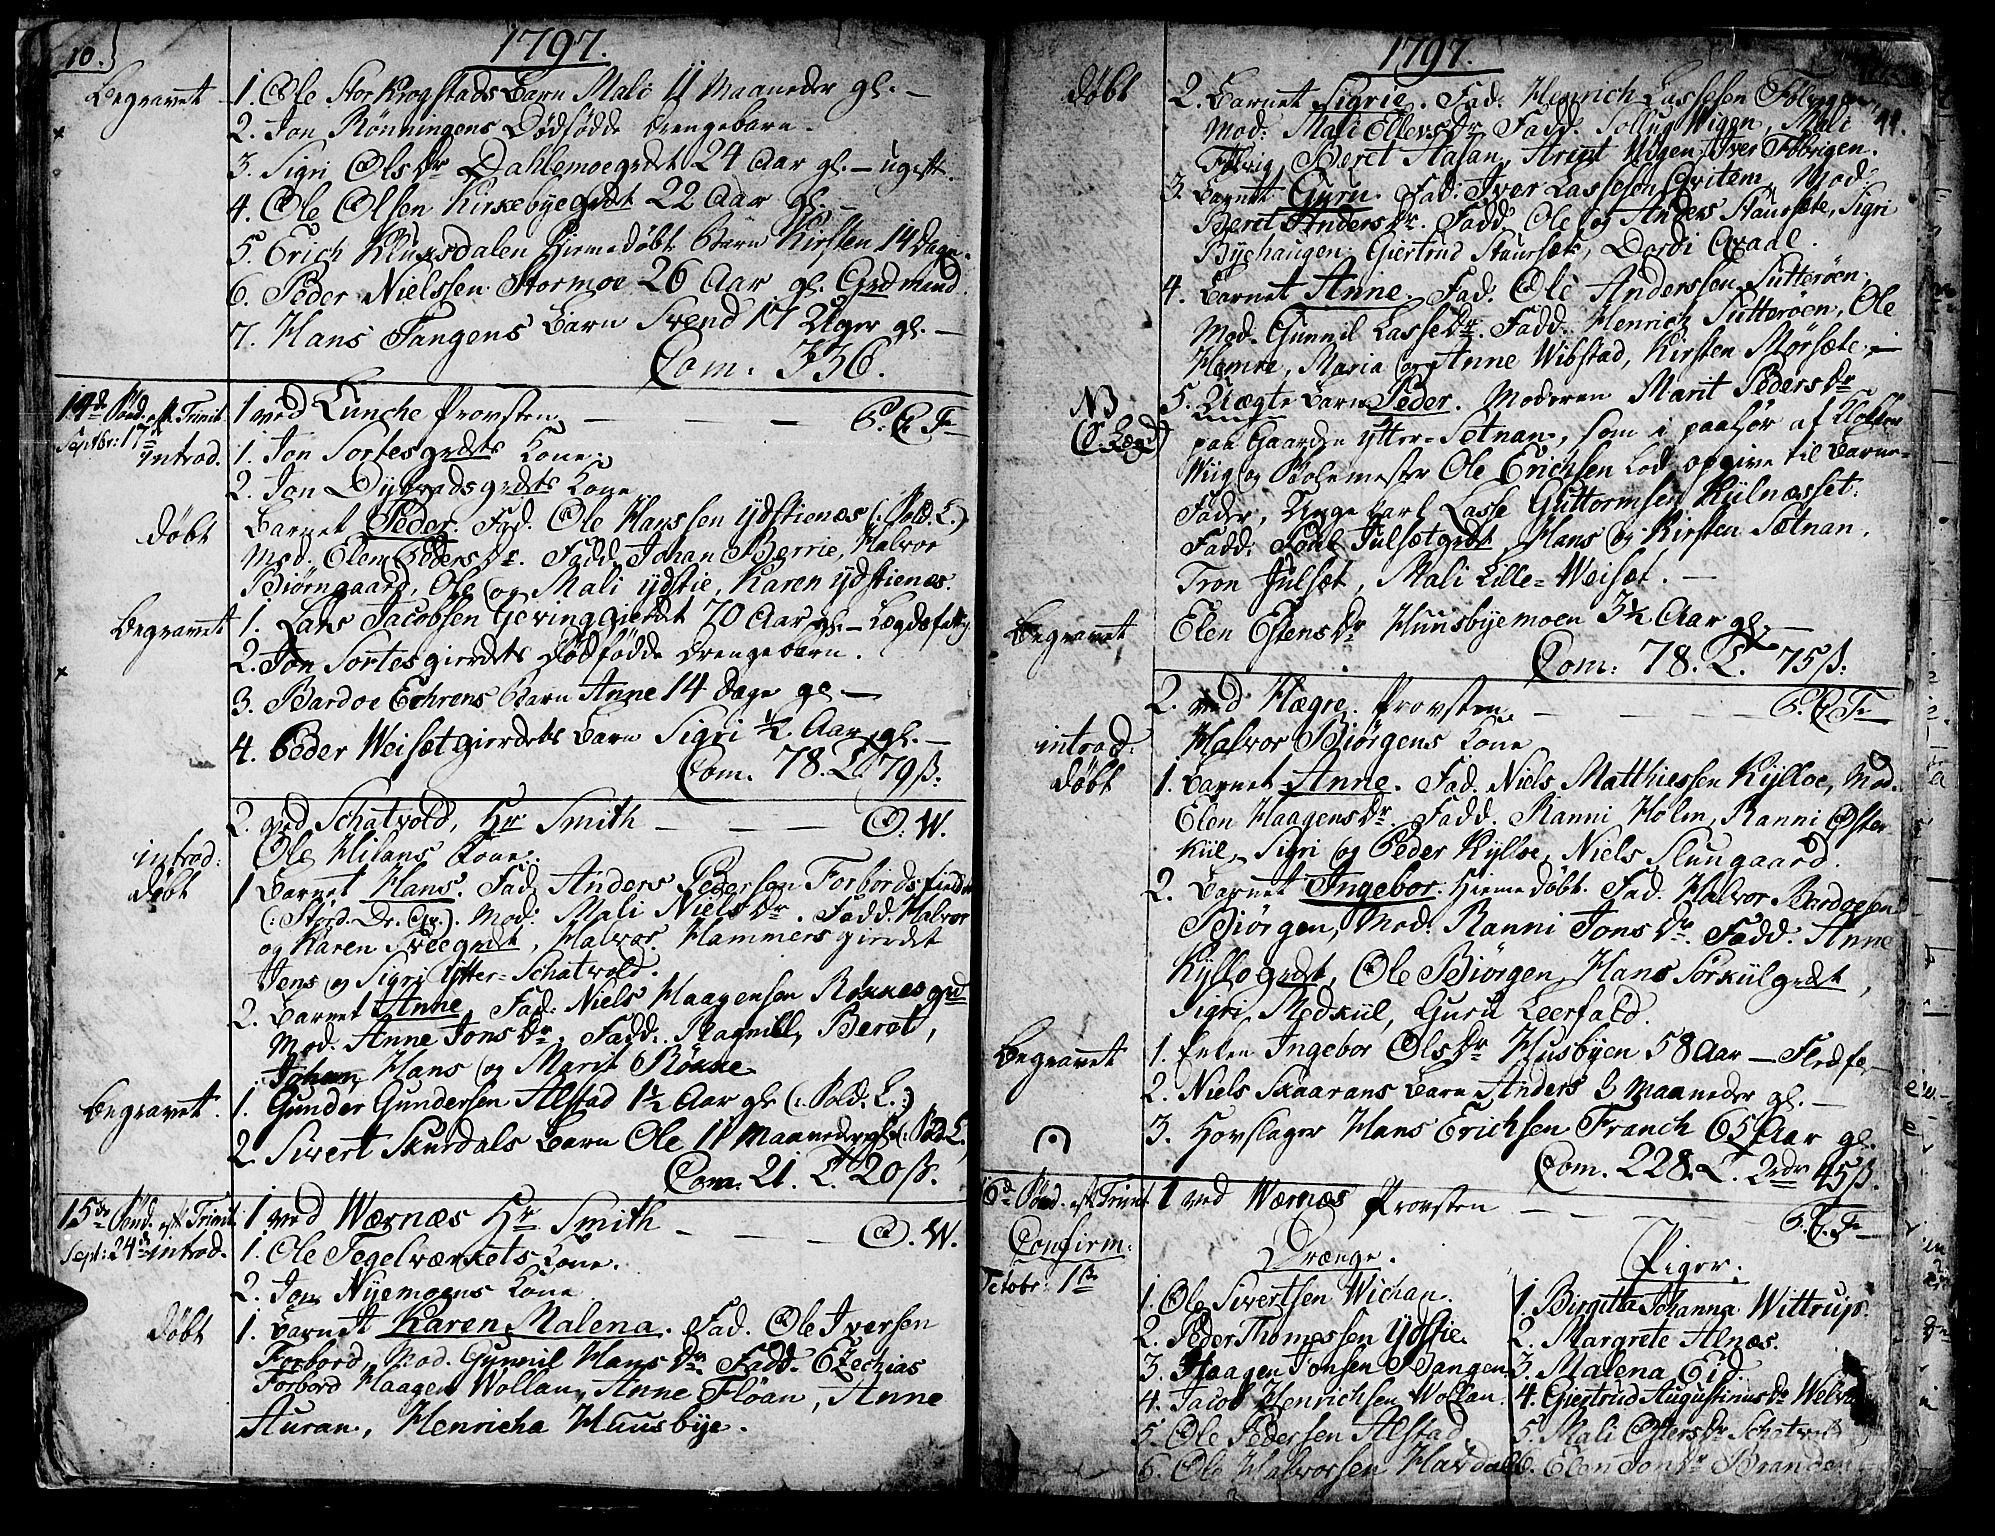 10.
1797.
Begravet
1. Ole Storkrogstads Barn Mali 11 Maaneder gl. –
2. Jon Rönningens Dödfödde Drengebarn.
3. Sigri Olsdr Dahlemoegrdt 24 Aar gl. – ugift.
4. Ole Olsen Kirkebyegrdt 22 Aar gl. –
5. Erich Klugsdalen Hiemedöbt Barn Kirsten 14 Dage.
6. Peder Nielssen Stormoe 26 Aar gl. Grdmand
7. Hans Tangens Barn Svend 17 Uger gl. –
Com. 336.
14de Sönd. eft. Trinit.
Septbr: 17de
1 ved Lunche Provsten – – – P. E. F.
introd.
1. Jon Sortesgrdts Kone.
2. Jon Dybvadsgrdts Kone
Döbt
Barnet Peder. Fad. Ole Hanssen Ydstienæs (: Sold. L:)
Mod. Elen Pedersdr. Fadd. Johan Berrie, Halvor
Biörngaard, Ole og Mali Ydstie, Karen Ydstienæs.
Begravet
1. Lars Jacobsen Gevinggierdet 70 Aar gl. – Lægdsfattig
2. Jon Sortesgierdets dödfödde Drengebarn.
3. Bardoe Echrens Barn Anne 14 Dage gl. –
4. Peder Weisætgierdets Barn Sigri ½ Aar gl. –
Com. 78. L. 79 ß.
2. ved Schatvold, Hr Smith – – – O. W.
introd:
Ole Hilans Kone.
Döbt
1 Barnet Hans. Fad. Anders Pedersen Forbordsfieldet
Mod: Mali Nielsdr. Fadd. Halvor
og Karen Sveegrdt, Halvor Hammersgierdet
Jens og Sigri Ytter-Schatvold.
2. Barnet Anne Fad: Niels Haagensen Rökkesgrd
Mod. Anne Jonsdr. Fadd. Ragnill, Beret,
Johan, Hans og Marit Rökke
Begravet.
1. Gunder Gundersen Alstad 1½ Aar gl. (: Sold. L.:)
2. Sivert Skurdals Barn Ole 11 Maaneder gl. (: Sold. L.
Com. 21. L. 20 ß.
15de Sönd. eft Trinit.
Sept: 24de
1 ved Wærnæs Hr Smith – – – O. W.
introd.
1. Ole Tegelværkets Kone.
2. Jon Nyemoens Kone
Döbt
1. Barnet Karen Malena. Fad. Ole Iversen
Forbord, Mod. Gunnil Hansdr. Fadd. Ezechias
Forbord Haagen Wollan, Anne Flöan, Anne
Auran, Henricha Huusbye.
1797.
11.
Döbt
2. Barnet Sigrie. Fad. Henrich Lassesen
Mod: Mali Ellevsdr. Fadd. Sollug Wigen, Mali
Beret Aasan, Arent Wigen, Iver
3. Barnet Guru. Fad: Iver Lassesen Qvitem, Mod
Beret Andersdr. Fadd. Ole og Anders Staursæte, Sigri
Byehaugen, Giertrud Staursæt, Dordi Qvaal.
4. Barnet Anne. Fad. Ole Anderssen Sutteröen,
Mod. Gunnil Lassedr. Fadd. Henrich Sutteröen, Ole
Hemre, Maria og Anne Wibstad, Kirsten Mörsæte. –
NB
5. Uægte Barn Peder. Moderen Marit Pedersdr
paa Gaarden Ytter-Setnan, som i paahör af Holger
Wiig og Bolemester Ole Erichsen lod opgive til Barne-
Fader, Unge Karl Lasse Guttormsen Kylnæsset.
Fadd. Poul Julsætgrdt, Hans og Kirsten Sætnan,
Tron Julsæt, Mali Lille-Weisæt. –
Begravet
Elen Estensdr Huusbyemoen 3¼ Aar gl. –
Com: 78. L. 75 ß.
2. ved Hægre. Provsten – – – P. E. F.
introd:
Halvor Biörgens Kone
Döbt
1. Barnet Anne. Fad. Niels Matthiessen Kylloe, Mod.
Elen Haagensdr. Fadd. Ranni Holm, Ranni Öfter
Kiil, Sigri og Peder Kylloe, Niels Slungaard.
2. Barnet Ingebor. Hiemedöbt. Fad. Halvor Bardoesen
Biörgen, Mod: Ranni Jonsdr. Fadd. Anne
Kyllogrdt, Ole Biörgen, Hans Sörkiilgrdt,
Sigri Medkiil, Guru Leerfald.
Begravet
1. Enken Ingebor Olsdr Husbyen 58 Aar –
2. Niels Skaarans Barn Anders 3 Maaneder gl. –
3. Hovslager Hans Erichsen Franch 65 Aar gl.
Com. 228. L. 2rdr 45 ß.
16de Sönd. eft Trinit
1 ved Wærnæs Provsten – – – P. E. F.
Confirm:
Octobr: 1ste
Drænge.
1. Ole Sivertsen Wichan.
2. Peder Thomessen Ydstie.
3. Haagen Jonsen Bangen
4. Jacob Henrichsen Wollan.
5. Ole Pedersen Alstad
6. Ole Halvorsen Havdal
Piger.
1. Birgitta Johanna Wittrup.
2. Margrete Alnæs.
3. Malena Eid.
4. Giertrud Augustinusdr
5. Mali Ostersdr Schatvold
6. Elen Jonsdr Branden